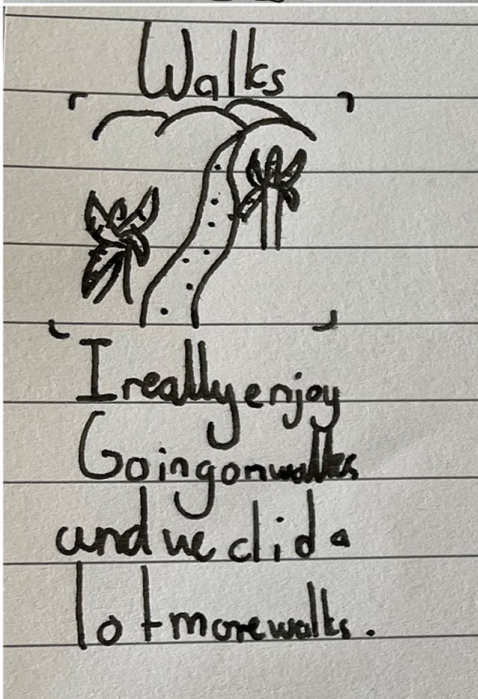 Walks
I really enjoy
Going on walks
and we did a
lot more walks.